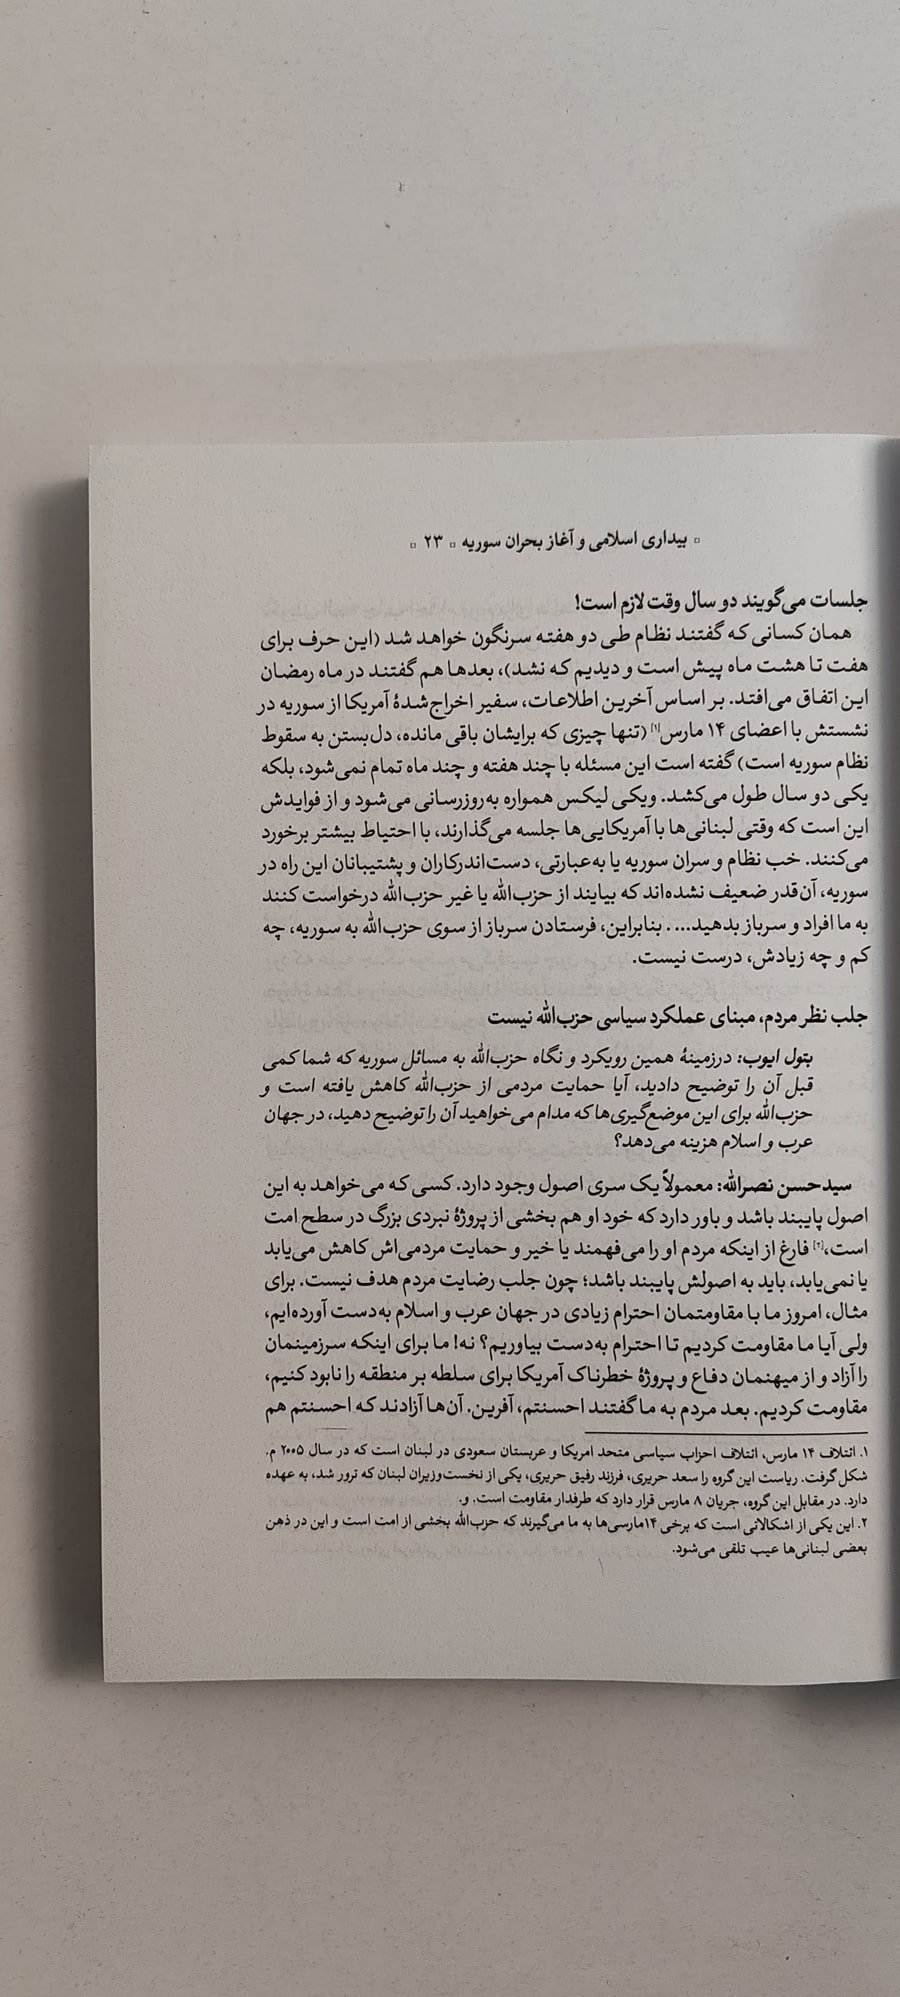 ▫ بیداری اسلامی و آغاز بحران سوریه ▫ ۲۳ ▫
جلسات می‌گویند دو سال وقت لازم است!
همان کسانی که گفتند نظام طی دو هفته سرنگون خواهد شد (این حرف برای
هفت تا هشت ماه پیش است و دیدیم که نشد)، بعدها هم گفتند در ماه رمضان
این اتفاق می‌افتد. بر اساس آخرین اطلاعات، سفیر اخراج‌شدهٔ آمریکا از سوریه در
نشستش با اعضای ۱۴ مارس[۱] (تنها چیزی که برایشان باقی مانده، دل‌بستن به سقوط
نظام سوریه است) گفته است این مسئله با چند هفته و چند ماه تمام نمی‌شود، بلکه
یکی دو سال طول می‌کشد. ویکی لیکس همواره به‌روزرسانی می‌شود و از فوایدش
این است که وقتی لبنانی‌ها با آمریکایی‌ها جلسه می‌گذارند، با احتیاط بیشتر برخورد
می‌کنند. خب نظام و سران سوریه یا به‌عبارتی، دست‌اندرکاران و پشتیبانان این راه در
سوریه، آن‌قدر ضعیف نشده‌اند که بیایند از حزب‌الله یا غیر حزب‌الله درخواست کنند
به ما افراد و سرباز بدهید... . بنابراین، فرستادن سرباز از سوی حزب‌الله به سوریه، چه
کم و چه زیادش، درست نیست.
جلب نظر مردم، مبنای عملکرد سیاسی حزب‌الله نیست
بتول ایوب: درزمینهٔ همین رویکرد و نگاه حزب‌الله به مسائل سوریه که شما کمی
قبل آن را توضیح دادید، آیا حمایت مردمی از حزب‌الله کاهش یافته است و
حزب‌الله برای این موضع‌گیری‌ها که مدام می‌خواهید آن را توضیح دهید، در جهان
عرب و اسلام هزینه می‌دهد؟
سیدحسن نصرالله: معمولاً یک سری اصول وجود دارد. کسی که می‌خواهد به این
اصول پایبند باشد و باور دارد که خود او هم بخشی از پروژهٔ نبردی بزرگ در سطح امت
است،[۲] فارغ از اینکه مردم او را می‌فهمند یا خیر و حمایت مردمی‌اش کاهش می‌یابد
یا نمی‌یابد، باید به اصولش پایبند باشد؛ چون جلب رضایت مردم هدف نیست. برای
مثال، امروز ما با مقاومتمان احترام زیادی در جهان عرب و اسلام به‌دست آورده‌ایم،
ولی آیا ما مقاومت کردیم تا احترام به‌دست بیاوریم؟ نه! ما برای اینکه سرزمینمان
را آزاد و از میهنمان دفاع و پروژهٔ خطرناک آمریکا برای سلطه بر منطقه را نابود کنیم،
مقاومت کردیم. بعد مردم به ما گفتند احسنتم، آفرین. آن‌ها آزادند که احسنتم هم
۱. ائتلاف ۱۴ مارس، ائتلاف احزاب سیاسی متحد امریکا و عربستان سعودی در لبنان است که در سال ۲۰۰۵ م.
شکل گرفت. ریاست این گروه را سعد حریری، فرزند رفیق حریری، یکی از نخست‌وزیران لبنان که ترور شد، به عهده
دارد. در مقابل این گروه، جریان ۸ مارس قرار دارد که طرفدار مقاومت است. و.
۲. این یکی از اشکالاتی است که برخی ۱۴مارسی‌ها به ما می‌گیرند که حزب‌الله بخشی از امت است و این در ذهن
بعضی لبنانی‌ها عیب تلقی می‌شود.